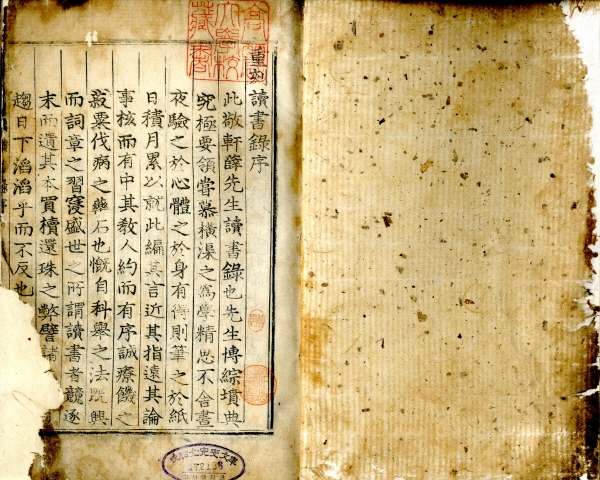 重刻讀書錄序
此敬軒薛先生讀書錄也先生博綜墳典
究極要領嘗慕橫渠之爲學精思不舍晝
夜驗之於心體之於身有得則筆之於紙
日積月累以就此編其言近其指遠其論
事核而有中其教人約而有序誠療饑之
菽粟伐病之藥石也慨自科舉之法既興
而詞章之習寖盛世之所謂讀書者競逐
末而遺其本買櫝還珠之弊譬諸
趨日下滔滔乎而不反也